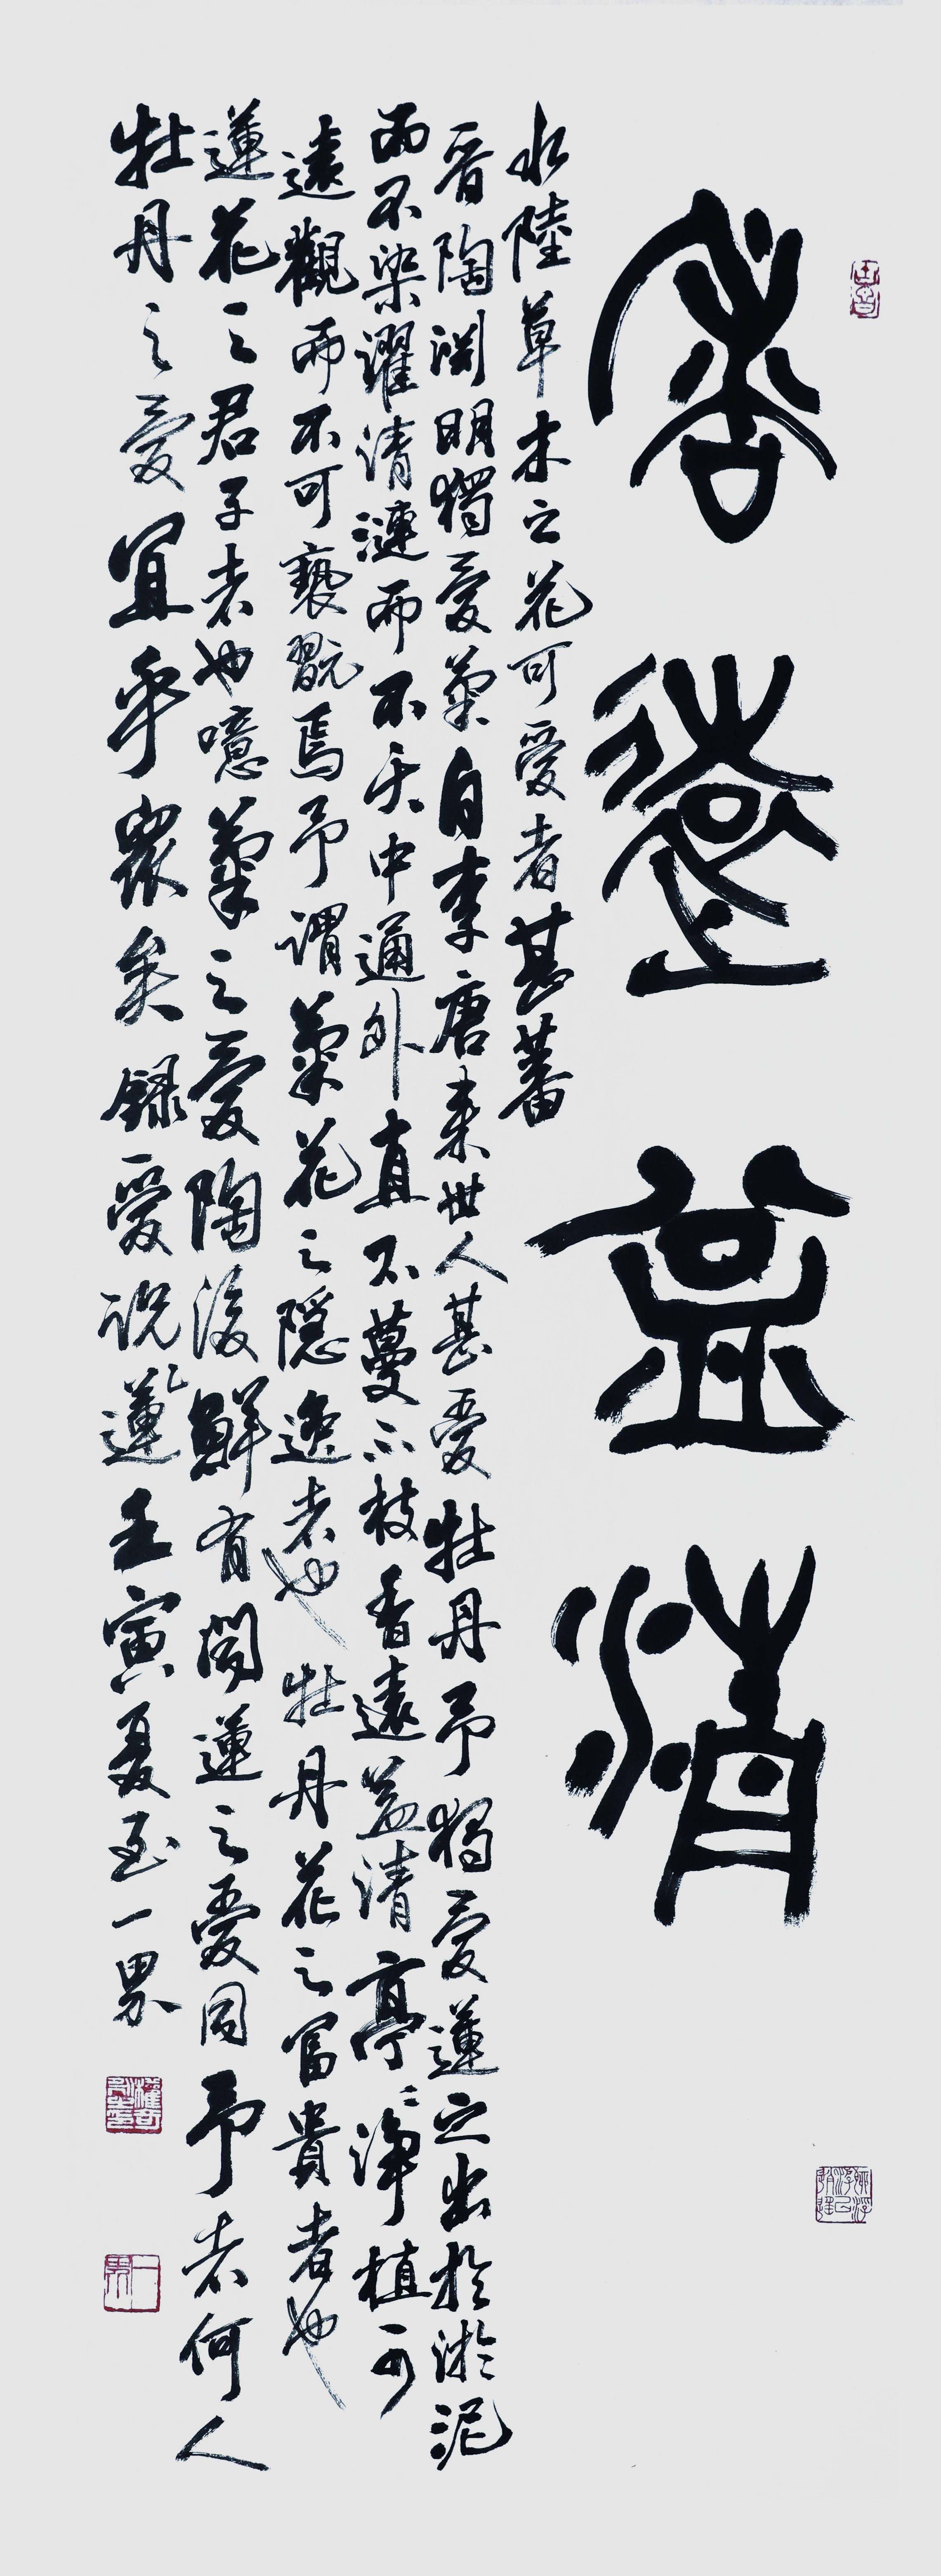 香遠益清
水陸草木之花可愛者甚蕃
晋陶渕明獨愛菊自李唐来世人甚愛牡丹予獨愛蓮之出於淤泥
而不染濯清漣而不夭中通外直不蔓不枝香遠益清亭〻淨植可
遠觀而不可褻翫焉予謂菊花之隱逸者也牡丹花之富貴者也
蓮花之君子者也噫菊之愛陶後鮮有聞蓮之愛同予者何人
牡丹之愛宜乎衆矣錄愛說蓮壬寅夏至一界
一界